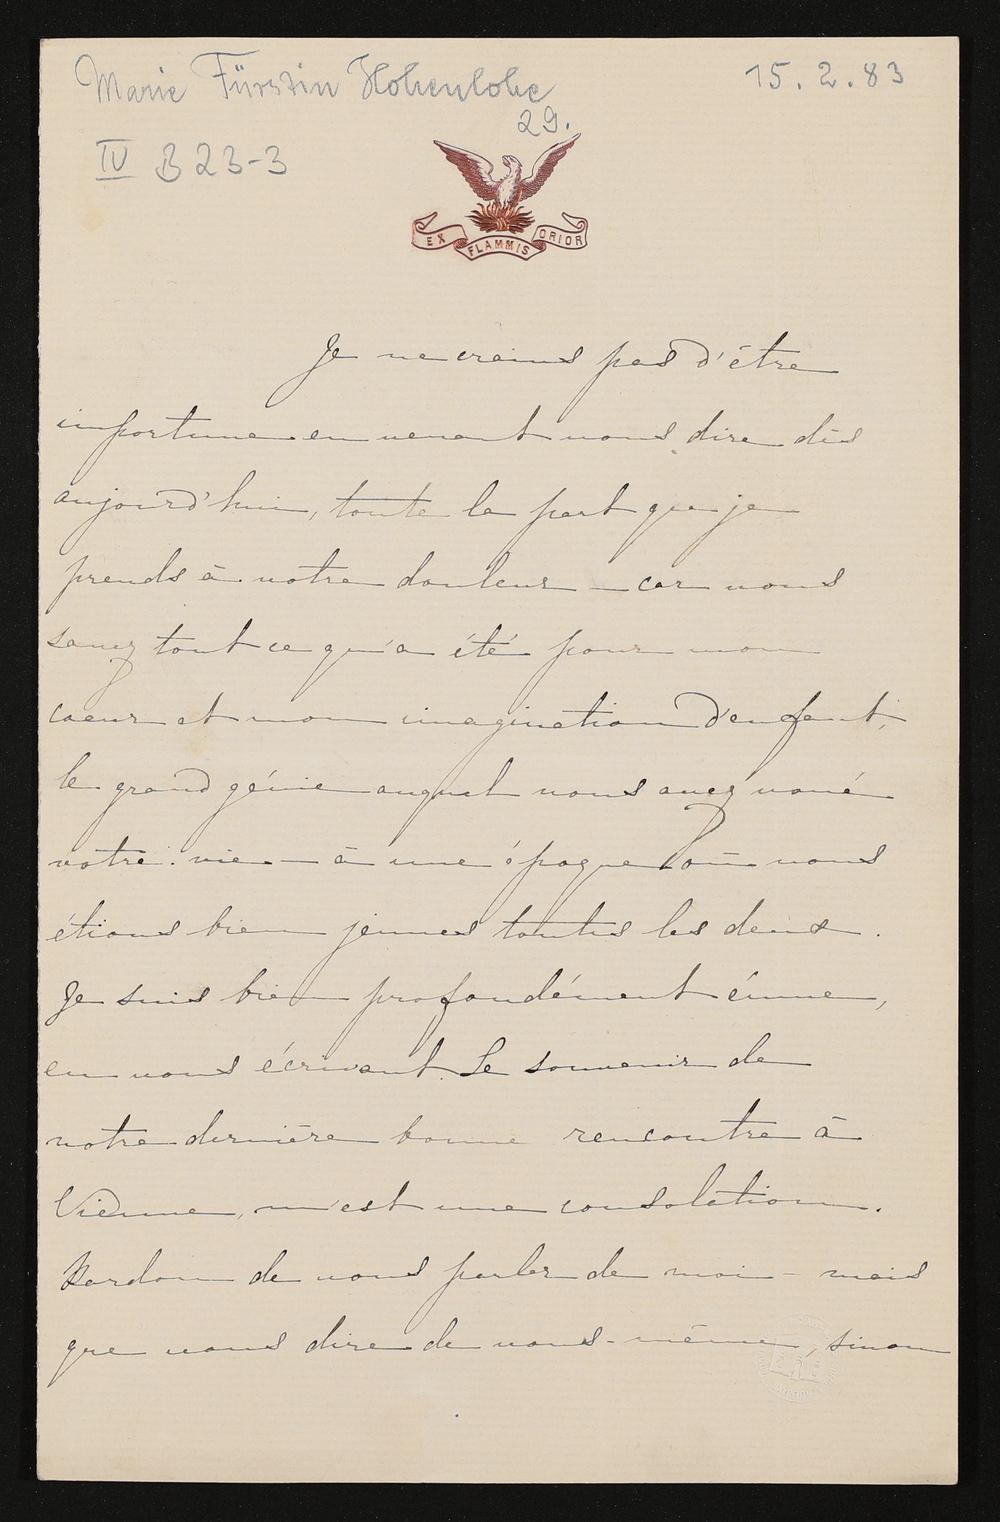 Marie Fürstin Hohenlohe
15.2.83
29.
IV B 23-3
EX FLAMMIS ORIOR
Je ne crains pas d'être
importune en venant vous dire dès
aujourd'hui, toute la part que je
prends à votre douleur – car vous
savez tout ce qu'a été pour mon
coeur et mon imagination d'enfant,
le grand génie auquel vous avez voué
votre vie – à une époque où nous
étions bien jeunes toutes les deux.
Je suis bien profondément émue,
en vous écrivant. Le souvenir de
notre dernière bonne rencontre à
Vienne, m'est une consolation.
Pardon de vous parler de moi mais
que vous dire de vous-même, sinon